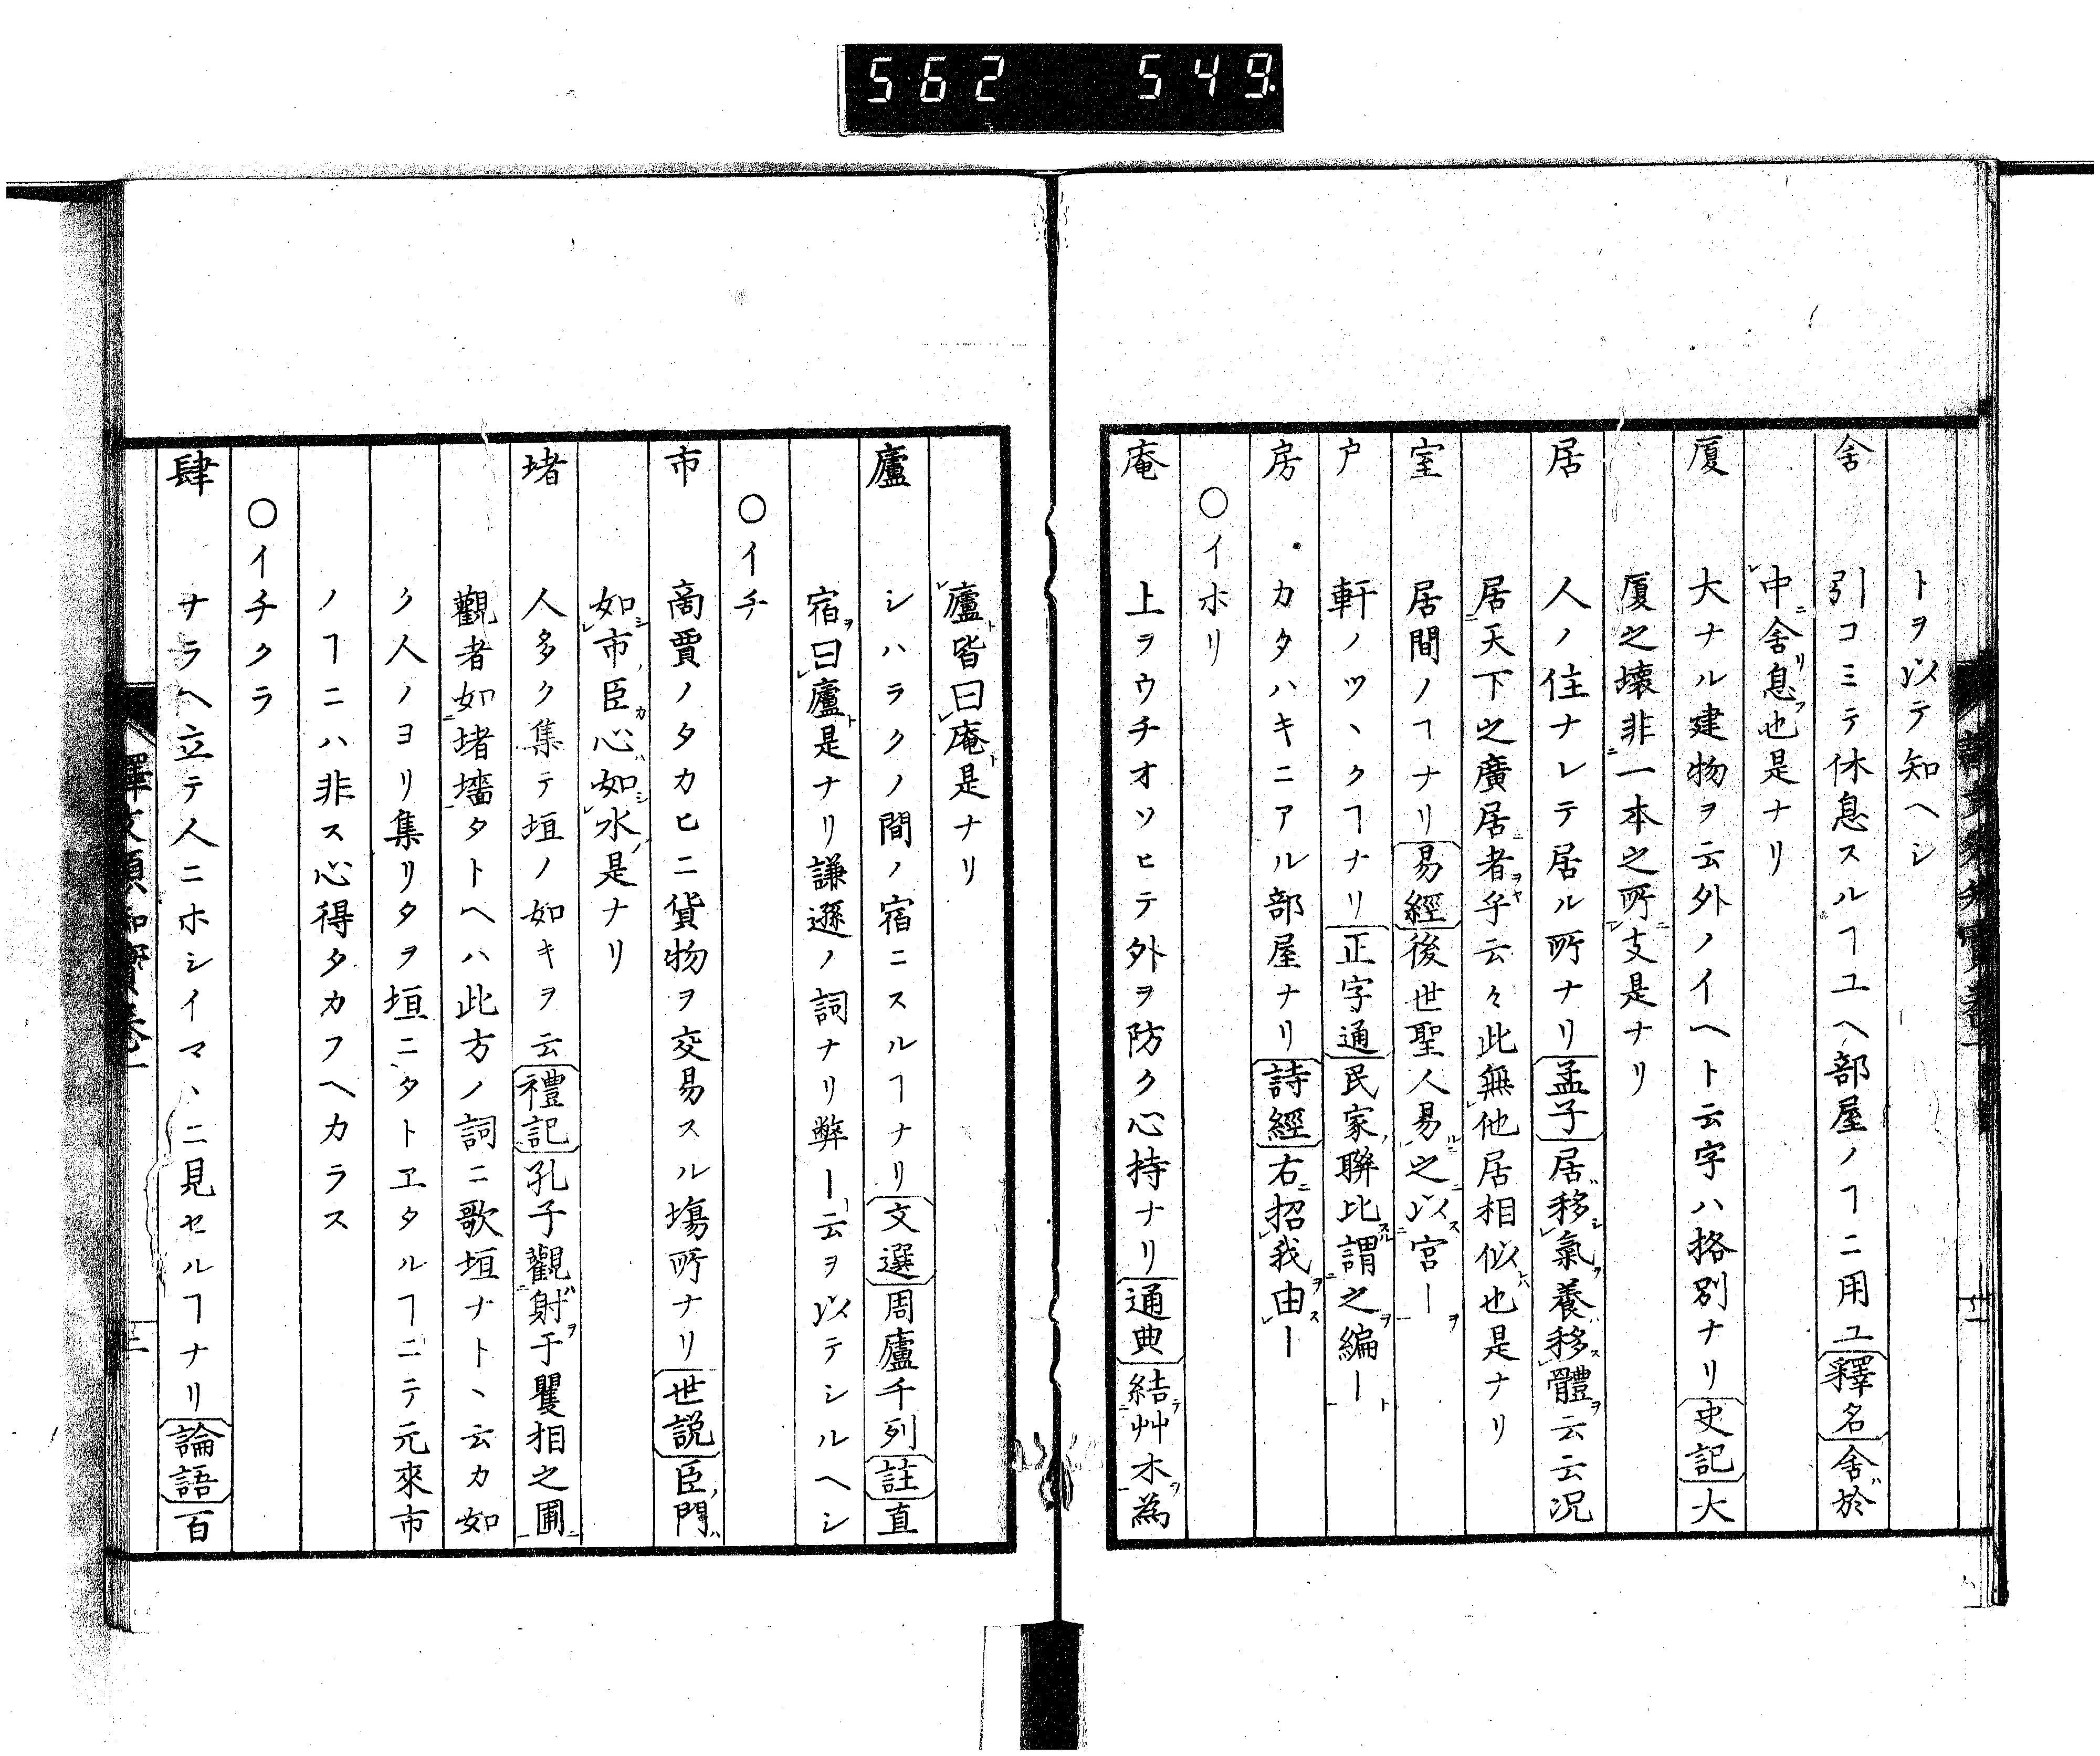 562 549
トヲ以テ知ヘシ
舍 引コミテ休息スルヿユヘ部屋ノヿニ用ユ釋名舍於
中舍息也是ナリ
厦 大ナル建物ヲ云外ノイヘト云字ハ格別ナリ史記大
厦之壊非一本之所支是ナリ
居 人ノ住ナレテ居ル所ナリ孟子居移氣養移體云云况
居天下之廣居者乎云々此無他居相似也是ナリ
室 居間ノヿナリ易經後世聖人易之以宮ー
戸 軒ノツヽクヿナリ正字通民家聯比謂之編ー
房 カタハキニアル部屋ナリ詩經右招我由ー
○イホリ
庵 上ヲウチオソヒテ外ヲ防ク心持ナリ通典結艸木為
廬皆曰庵是ナリ
廬 シハラクノ間ノ宿ニスルヿナリ文選周廬千列註直
宿曰廬是ナリ謙遜ノ詞ナリ弊ー云ヲ以テシルヘシ
○イチ
市 商賈ノタカヒニ貨物ヲ交易スル塲所ナリ世説臣門
如市臣心如水是ナリ
堵 人多ク集テ垣ノ如キヲ云禮記孔子觀射于矍相之圃
觀者如堵墻タトヘハ此方ノ詞ニ歌垣ナトヽ云カ如
ク人ノヨリ集リタヲ垣ニタトヱタルヿニテ元來市
ノヿニハ非ス心得タカフヘカラス
○イチクラ
肆 ナラヘ立テ人ニホシイマヽニ見セルヿナリ論語百